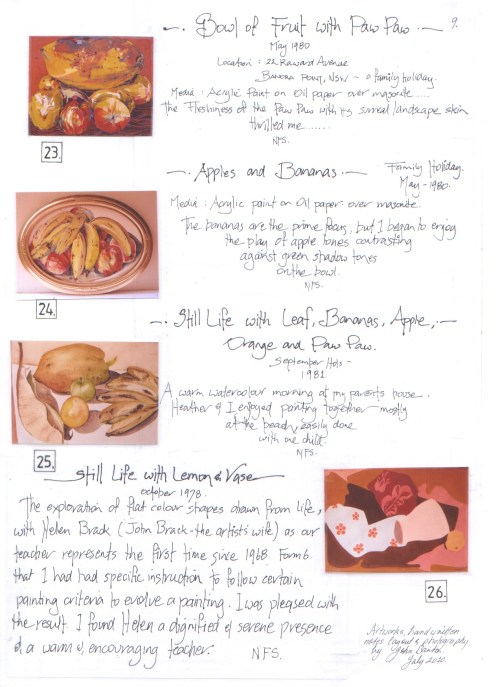 Bowl of Fruit with Paw Paw
9.
May 1980
Location : 22 Raward Avenue
Banora Point, NSW - a family holiday.
Media : Acrylic Paint on Oil paper over masonite
The Fleshiness of the Paw Paw with its surreal landscape skin
thrilled me......
NFS.
23.
Apples and Bananas
Family Holiday.
May - 1980.
Media : Acrylic paint on Oil paper over masonite
The bananas are the prime focus, but I began to enjoy
the play of apple tones contrasting
against green shadow tones
on the bowl.
NFS.
24.
Still Life with Leaf, Bananas, Apple,
Orange and Paw Paw.
September Hols -
1981
A warm watercolour morning at my parents house.
Heather & I enjoyed painting together mostly
at the beach, easily done
with one child.
NFS.
25.
Still Life with Lemon & Vase
October 1978.
The exploration of flat colour shapes drawn from life,
with Helen Brack (John Brack - the artist's wife) as our
teacher represents the first time since 1968 Form 6
that I had had specific instruction to follow certain
painting criteria to evolve a painting. I was pleased with
the result. I found Helen a dignified & serene presence
& a warm & encouraging teacher.
NFS.
26.
Artworks, hand written
notes, layout & photography
- by
July 2020.